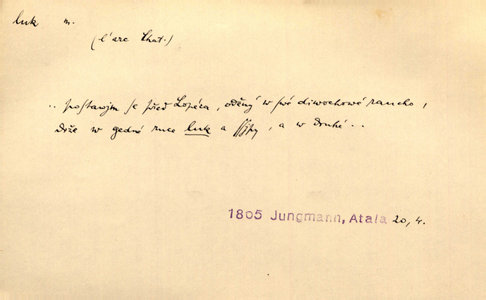 luk m.
(l'arc Chat.)
.. postawjm se před Lopéza, oděný w swé diwochowé raucho,
drže w gedné ruce luk a ssjpy, a w druhé..
1805 Jungmann, Atala 20, 4.